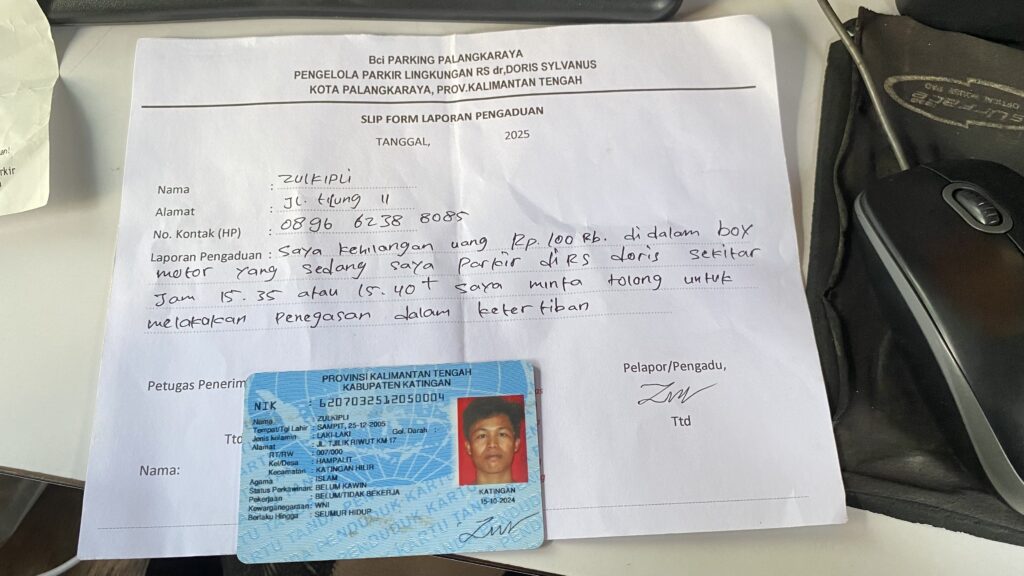 Bci PARKING PALANGKARAYA
PENGELOLA PARKIR LINGKUNGAN RS dr,DORIS SYLVANUS
KOTA PALANGKARAYA, PROV.KALIMANTAN TENGAH
SLIP FORM LAPORAN PENGADUAN
TANGGAL, 2025
Nama : ZULKIPLI
Alamat : JL. tilung 11
No. Kontak (HP) : 0896 6238 8085
Laporan Pengaduan : Saya kehilangan uang Rp. 100 Rb. di dalam box
motor yang sedang saya Parkir di RS doris sekitar
Jam 15.35 atau 15.40+ saya minta tolong untuk
melakokan Penegasan dalam ketertiban
Petugas Penerim
Pelapor/Pengadu,
Ttd
Ttd
Nama:
PROVINSI KALIMANTAN TENGAH
KABUPATEN KATINGAN
NIK : 6207032512050004
Nama : ZULKIPLI
Tempat/Tgl Lahir : SAMPIT, 25-12-2005
Jenis kelamin : LAKI-LAKI Gol. Darah :
Alamat : JL. TJILIK RIWUT KM 17
RT/RW : 007/000
Kel/Desa : HAMPALIT
Kecamatan : KATINGAN HILIR
Agama : ISLAM
Status Perkawinan: BELUM KAWIN
Pekerjaan : BELUM/TIDAK BEKERJA
Kewarganegaraan: WNI
Berlaku Hingga : SEUMUR HIDUP
KATINGAN
15-10-2024